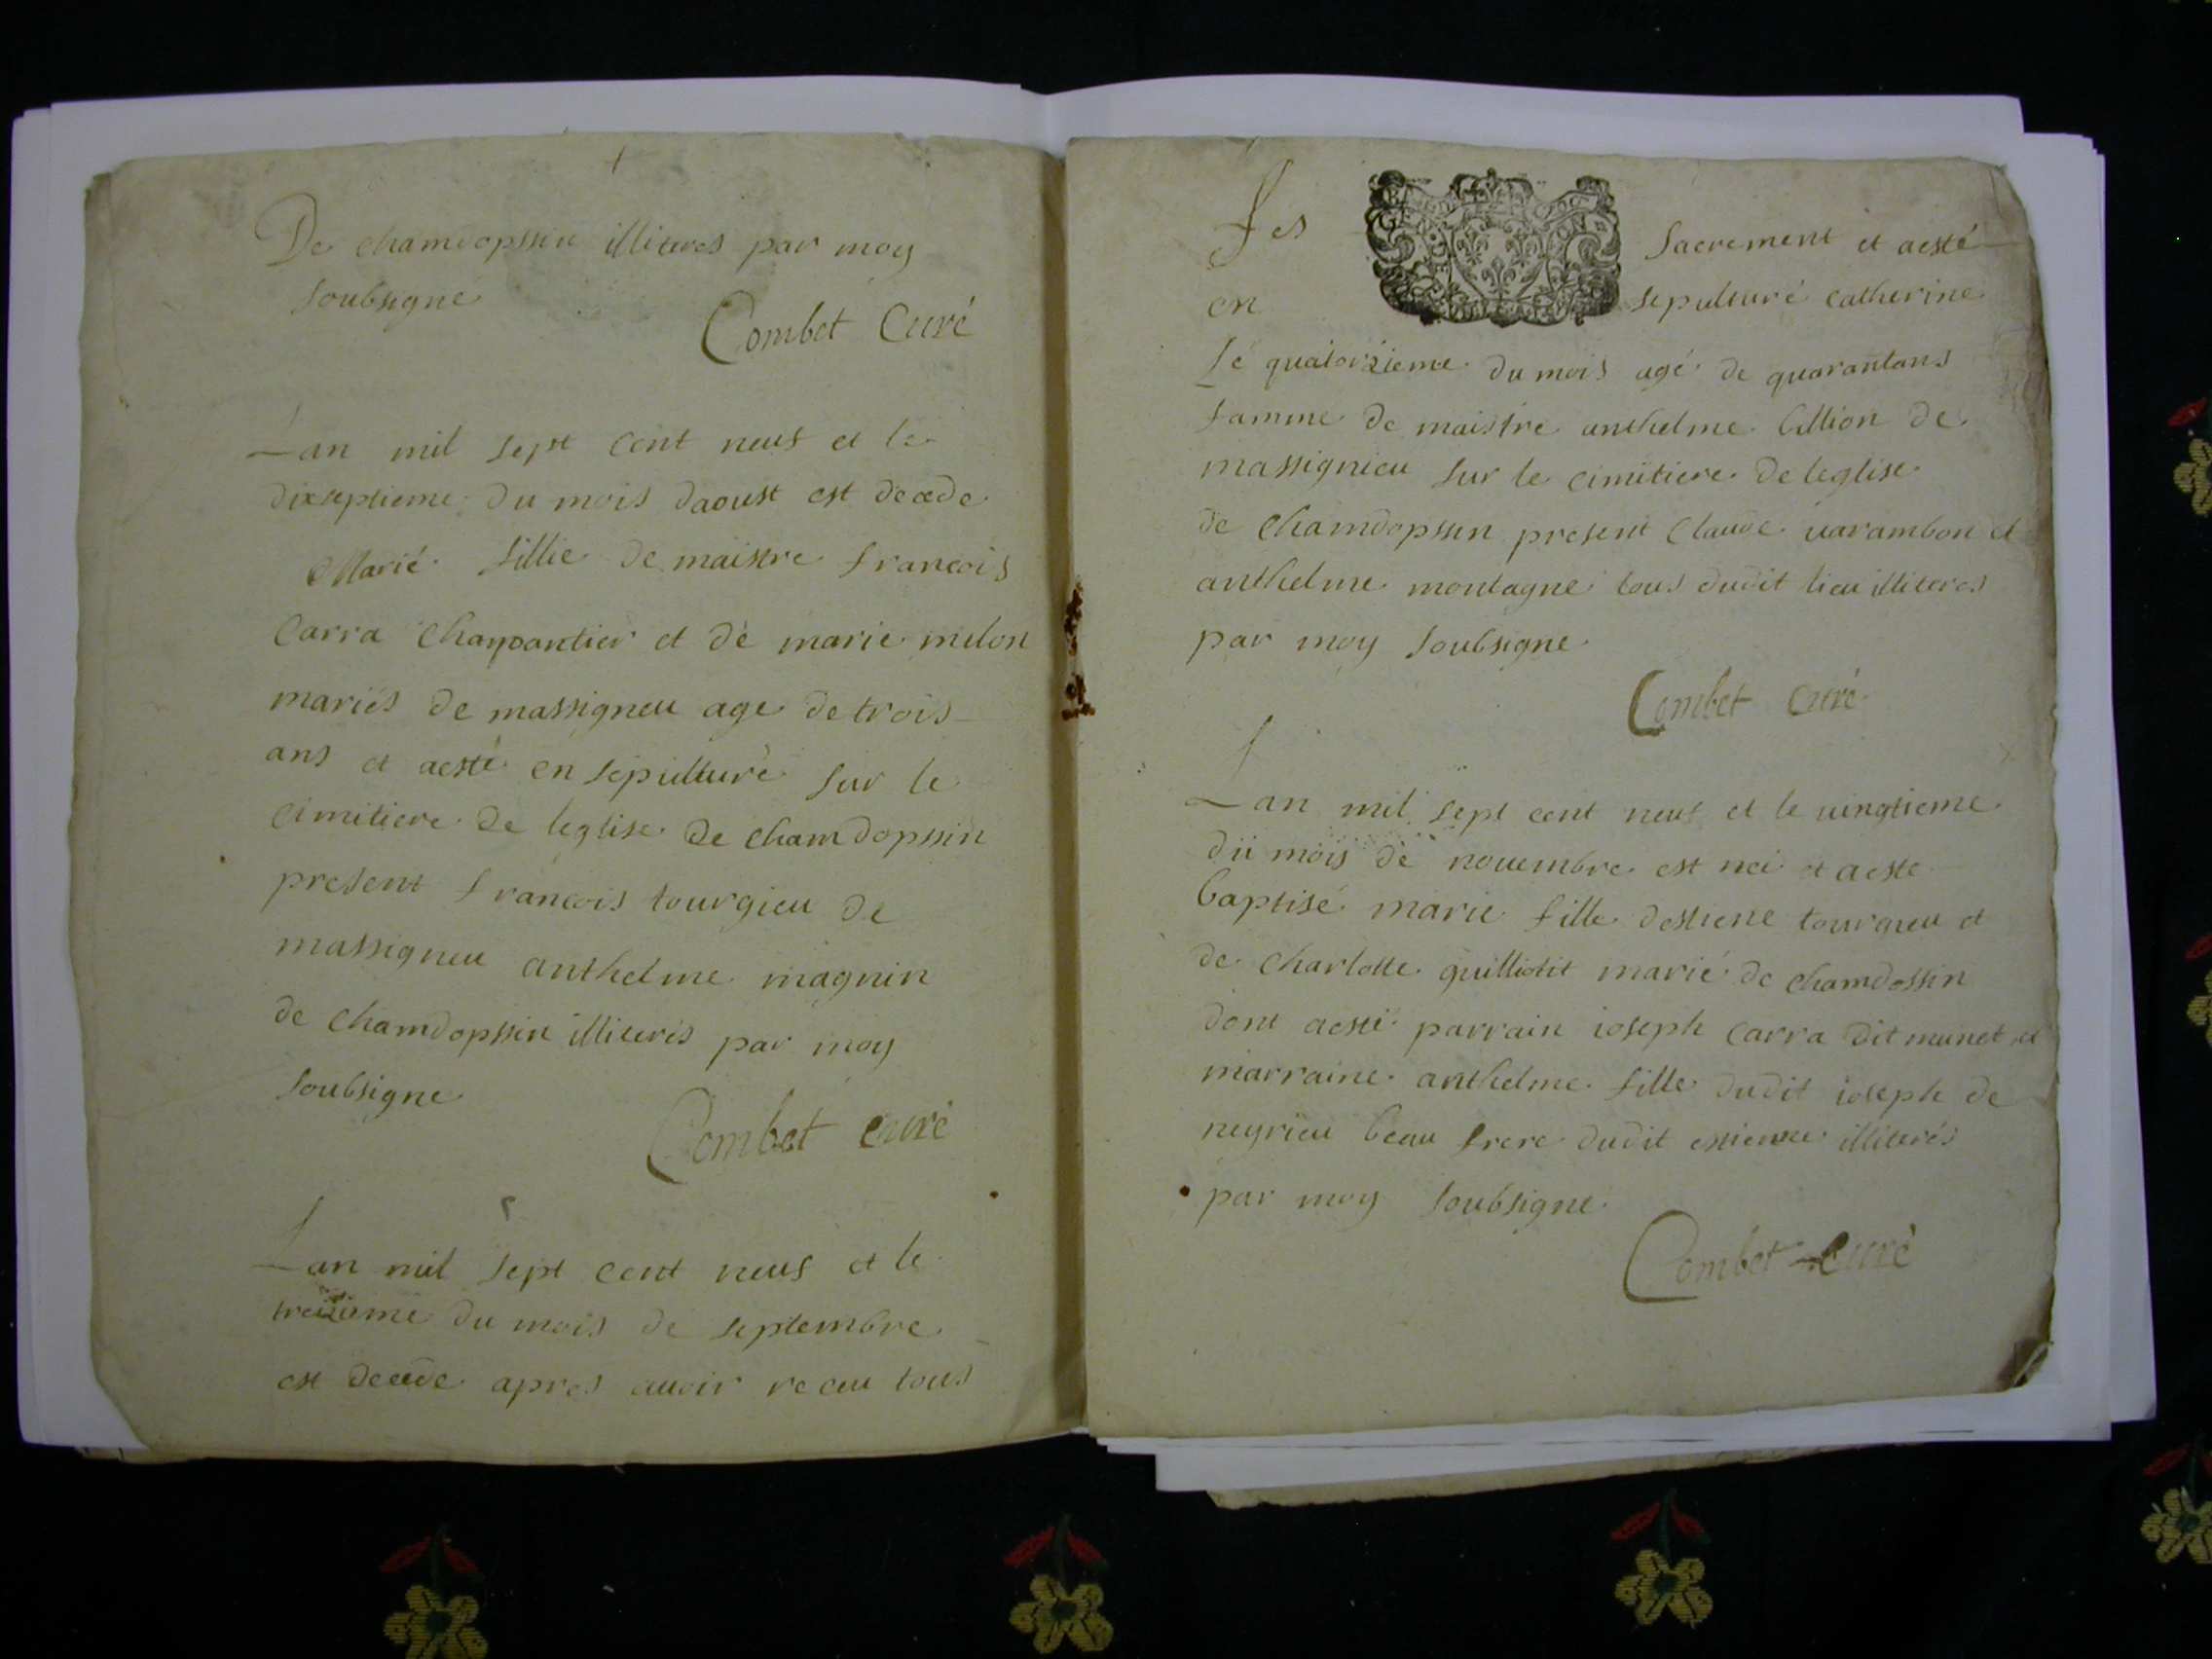 De chamdopssin illiteres par moy
soubsigné
Combet Curé
Lan mil sept cent neuf et le
dixseptieme du mois daoust est decede
Marié fillie de maistre francois
Carra Charpantier et de marie milon
mariés de massigneu age de trois
ans et aesté en sepulturé sur le
cimitiere de leglise de chamdopssin
present francois tourgieu de
massigneu anthelme magnin
de chamdopssin illiterés par moy
soubsigne
Combet curé
Lan mil sept cent neuf et le
treizieme du mois de septembre
est decede apres auoir receu tous
les sacrement et aesté
en sepulturé catherine
Le quatorzieme du mois agé de quarantans
famme de maistre anthelme de
massignieu sur le cimitiere de leglise
de Chamdopssin present Claude uarambon et
anthelme montagne tous dudit lieu illiteres
par moy soubsigne
Combet Curé
Lan mil sept cent neuf et le uingtieme
du mois de nouembre est nei et aeste
baptisé marie fille destiene tourgieu et
de Charlotte guilliotit marié de chamdossin
dont aesté parrain ioseph Carra dit munet et
marraine anthelme fille dudit ioseph de
neyrieu beau frere dudit estienne illiterés
par moy soubsigne
Combet curé